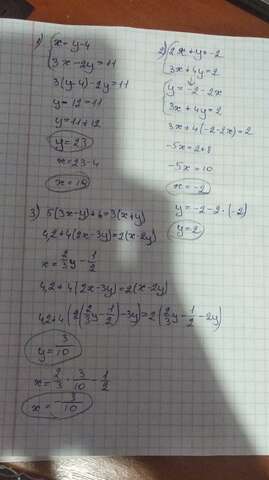 1) {x = y-4
3x-2y=11
3(y-4)-2y=11
y=12=11
y=11+12
y=23
x=23-4
x=19
2) {2x+y=-2
{3x+4y=2
{y=-2-2x
{3x+4y=2
3x+4(-2-2x)=2
-5x=2+8
-5x=10
x=-2
y=-2-2·(-2)
y=2
3) 5(3x-y)+6=3(x+y)
4,2+4(2x-3y)=2(x-2y)
x=2/3y-1/2
4,2+4(2x-3y)=2(x-2y)
4,2+4(2(2/3y-1/2)-3y)=2(2/3y-1/2-2y)
y=3/10
x=2/3·3/10-1/2
x=-3/10